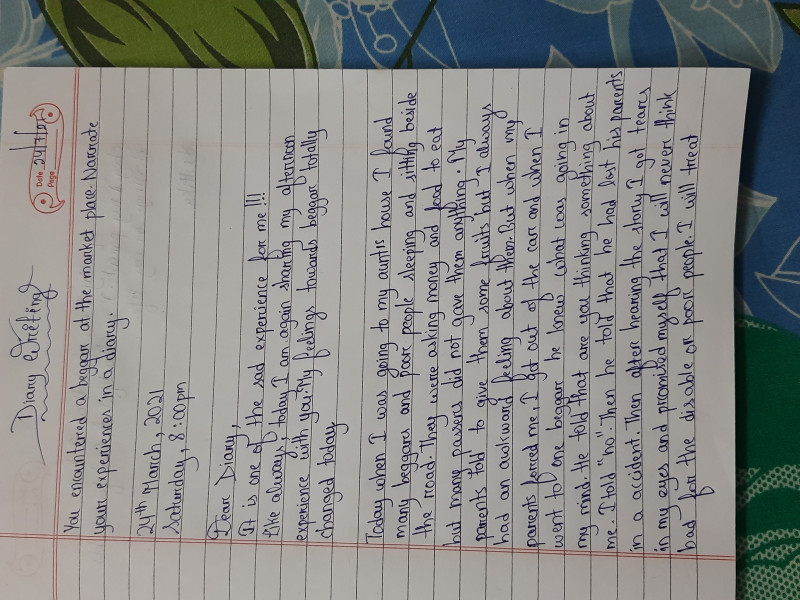 Diary Writing
Date 24/3/21
Page
You encountered a beggar at the market place. Narrate
your experiences in a diary.
24th March, 2021
Saturday, 8:00pm
Dear Diary,
It is one of the sad experience for me !!!
like always, today I am again sharing my afternoon
experience with you. My feelings towards beggar totally
changed today.
Today when I was going to my aunt's house I found
many beggars and poor people sleeping and sitting beside
the road. They were asking money and food to eat
but many passers did not gave them anything. My
parents told to give them some fruits but I always
had an awkward feeling about them. But when my
parents forced me, I got out of the car and when I
went to one beggar he knew what was going in
my mind. He told that are you thinking something about
me. I told "no". Then he told that he had lost his parents
in a accident. Then after hearing the story I got tears
in my eyes and promised myself that I will never think
bad for the disable or poor people. I will treat